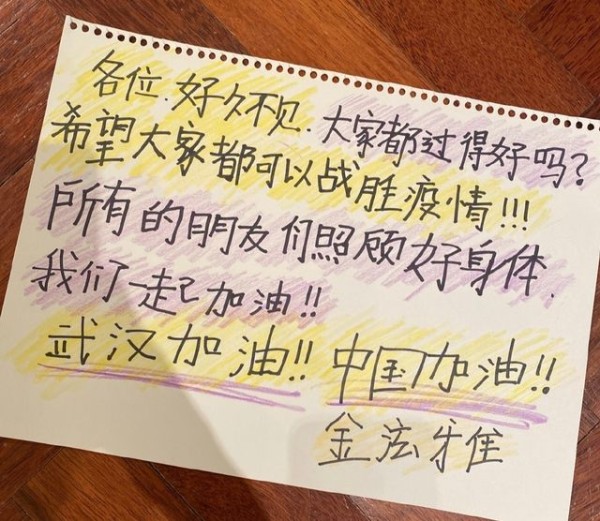 各位.好久不见.大家都过得好吗?
希望大家都可以战胜疫情!!!
所有的朋友们照顾好身体.
我们一起加油!!
武汉加油!! 中国加油!!
金泫雅